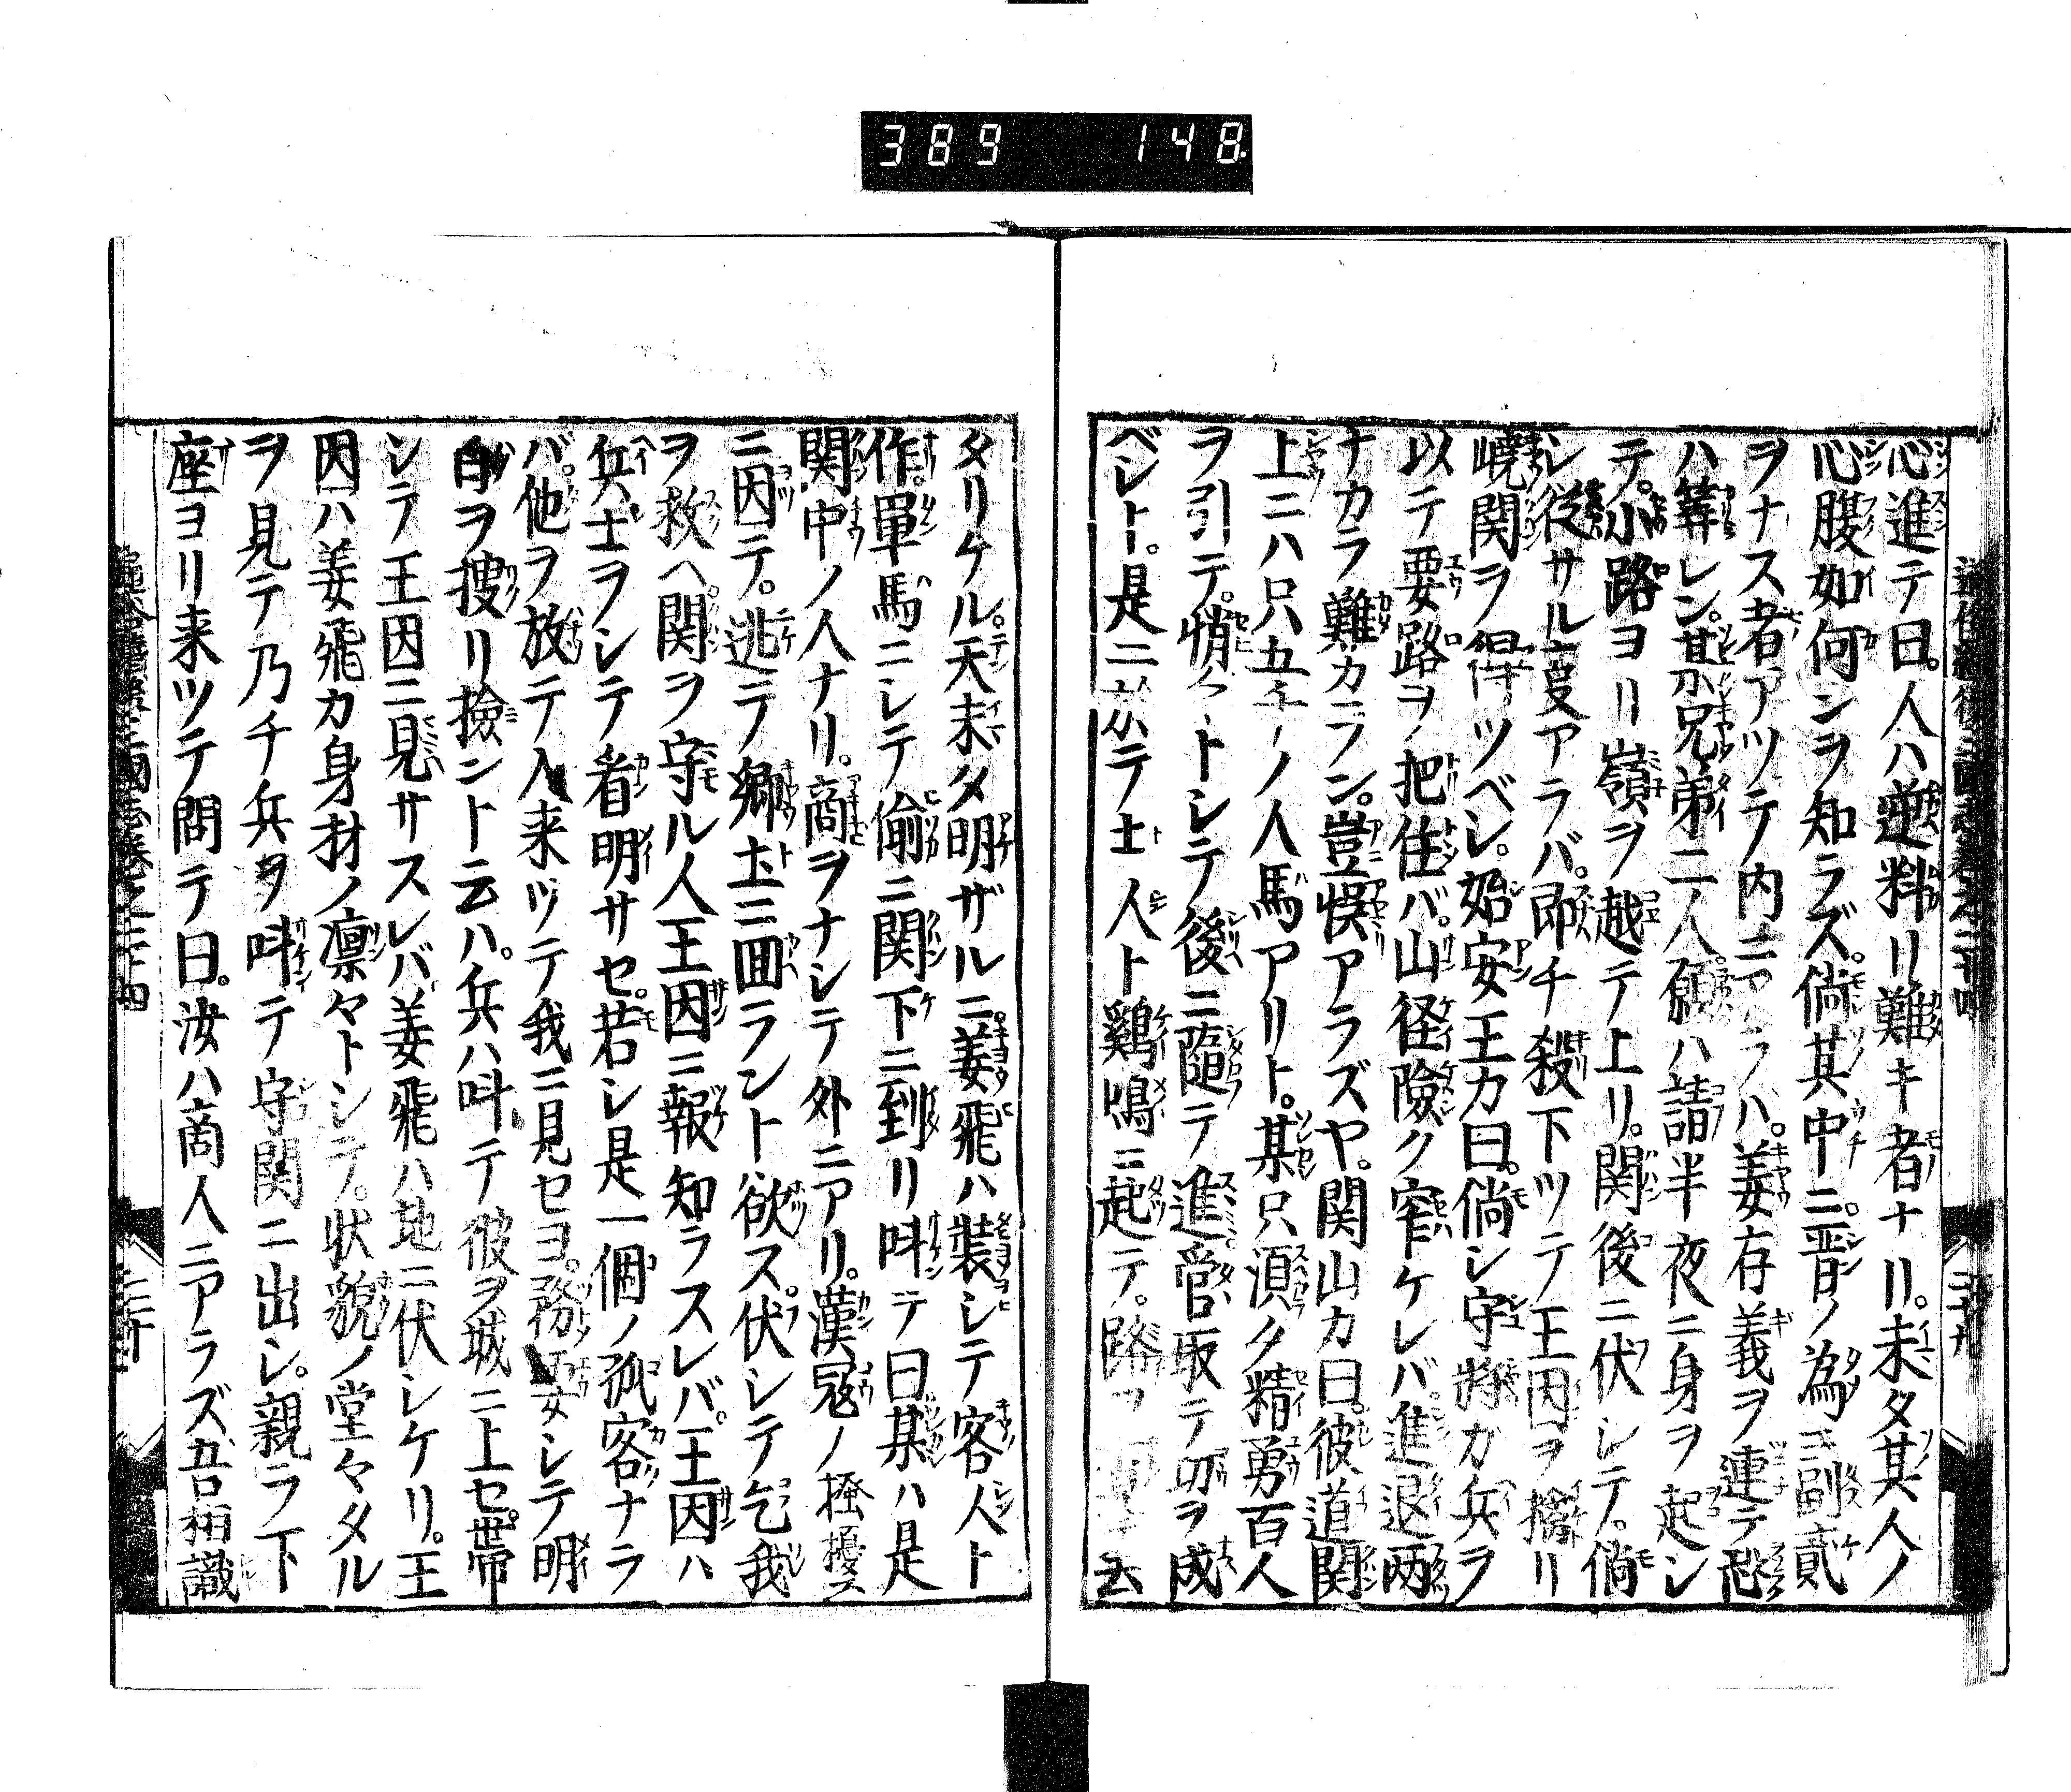 389 148
心進テ曰。人ハ逆料リ難キ者ナリ。未タ其人ノ
心腹如何ンヲ知ラズ。倘其中ニ。晋ノ為ニ副貳
ヲナス者アツテ内ニアラハ。姜存義ヲ連テ恐
ハ弊レン。某兄弟二人。願ハ請半夜ニ身ヲ起シ
テ。小路ヨリ嶺ヲ越テ上リ。関後ニ伏シテ。倘
シ従サル度アラバ。即チ殺下ツテ王因ヲ擒リ
嶢関ヲ得ツベシ。始安王カ曰。倘シ守将カ兵ヲ
以テ要路ヲ把住バ。山径險ク窄ケレバ進退两
ナカラ難カラン。豈悞アラズヤ。関山カ曰。彼道関
上ニハ只五千ノ人馬アリト。某只湏ク精勇百人
ヲ引テ。悄々トシテ後ニ隨テ進。管取テ功ヲ成
ベシト。是ニ於テ士人ト鷄鳴ニ起テ。路ヲ
タリケル。天未タ明ザルニ。姜飛ハ裝シテ客人ト
作。單馬ニシテ偷ニ関下ニ到リ呌テ曰。某ハ是
関中ノ人ナリ。商ヲナシテ外ニアリ。漢冦ノ搔擾ス
ニ因テ。逃テ郷土ニ囬ラント欲ス。伏シテ乞我
ヲ救ヘ関ヲ守ル人王因ニ報知ラスレバ。王因ハ
兵士ヲシテ看明サセ。若シ是一個ノ孤客ナラ
バ。他ヲ放テ入来ツテ我ニ見セヨ。務要シテ明
白ヲ搜リ撿ント云ハ。兵ハ呌テ彼ヲ城ニ上セ。帯
シテ王因ニ見サスレバ。姜飛ハ地ニ伏シケリ。王
因ハ姜飛カ身材ノ凛々トシテ。状貌ノ堂々タル
ヲ見テ乃チ兵ヲ呌テ守関ニ出シ。親ラ下
座ヨリ来ツテ問テ曰。汝ハ商人ニアラズ吾相識